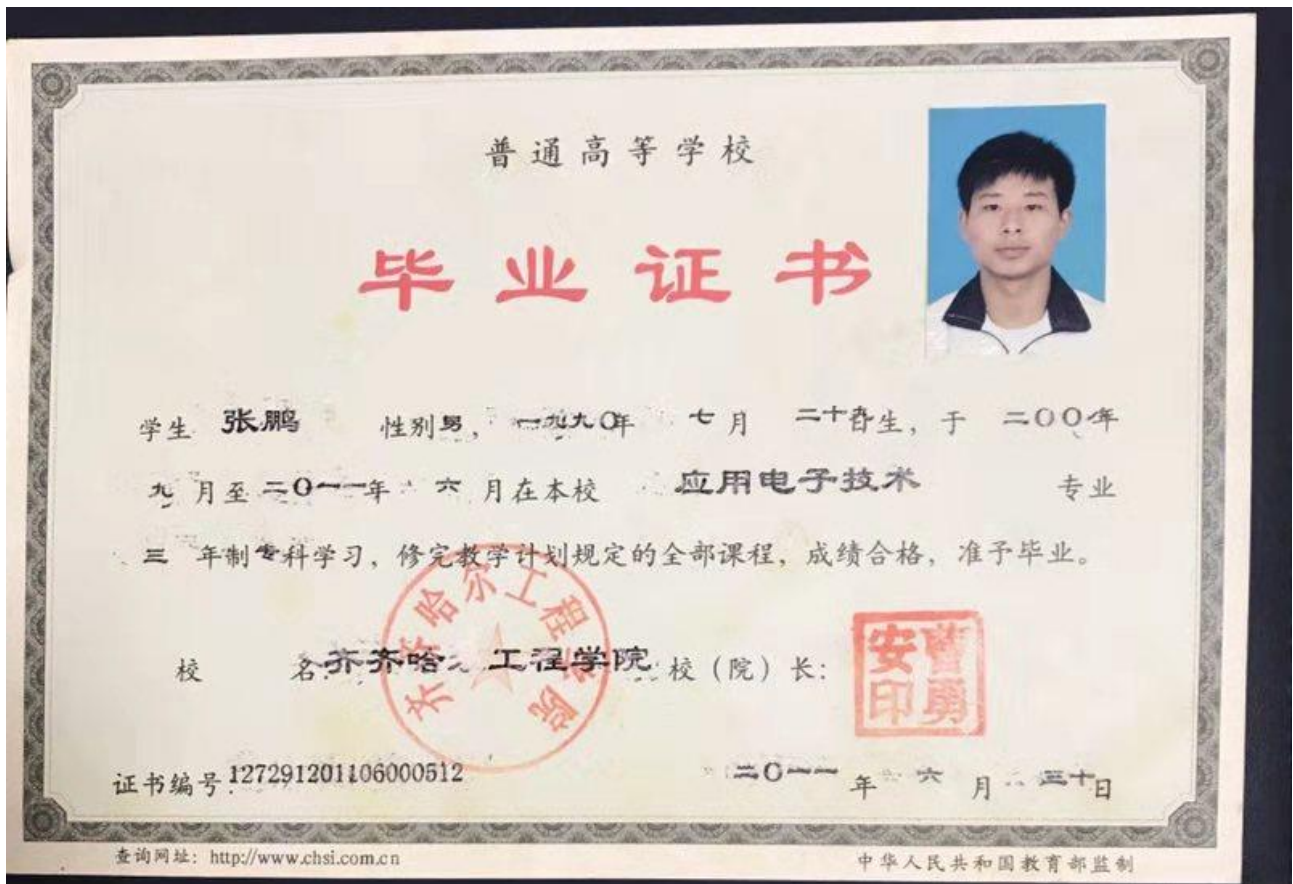 普通高等学校
毕业证书
学生 张鹏 性别男，一九九〇年 七月 二十 日生，于 二〇〇 年
九 月至二〇一一年 六 月在本校 应用电子技术 专业
三 年制专科学习，修完教学计划规定的全部课程，成绩合格，准予毕业。
校 名：齐齐哈 工程学院 校（院）长：
齐齐哈尔工程学院
曹勇安印
证书编号：127291201106000512 二〇一一 年 六 月 三十日
查询网址：http://www.chsi.com.cn 中华人民共和国教育部监制